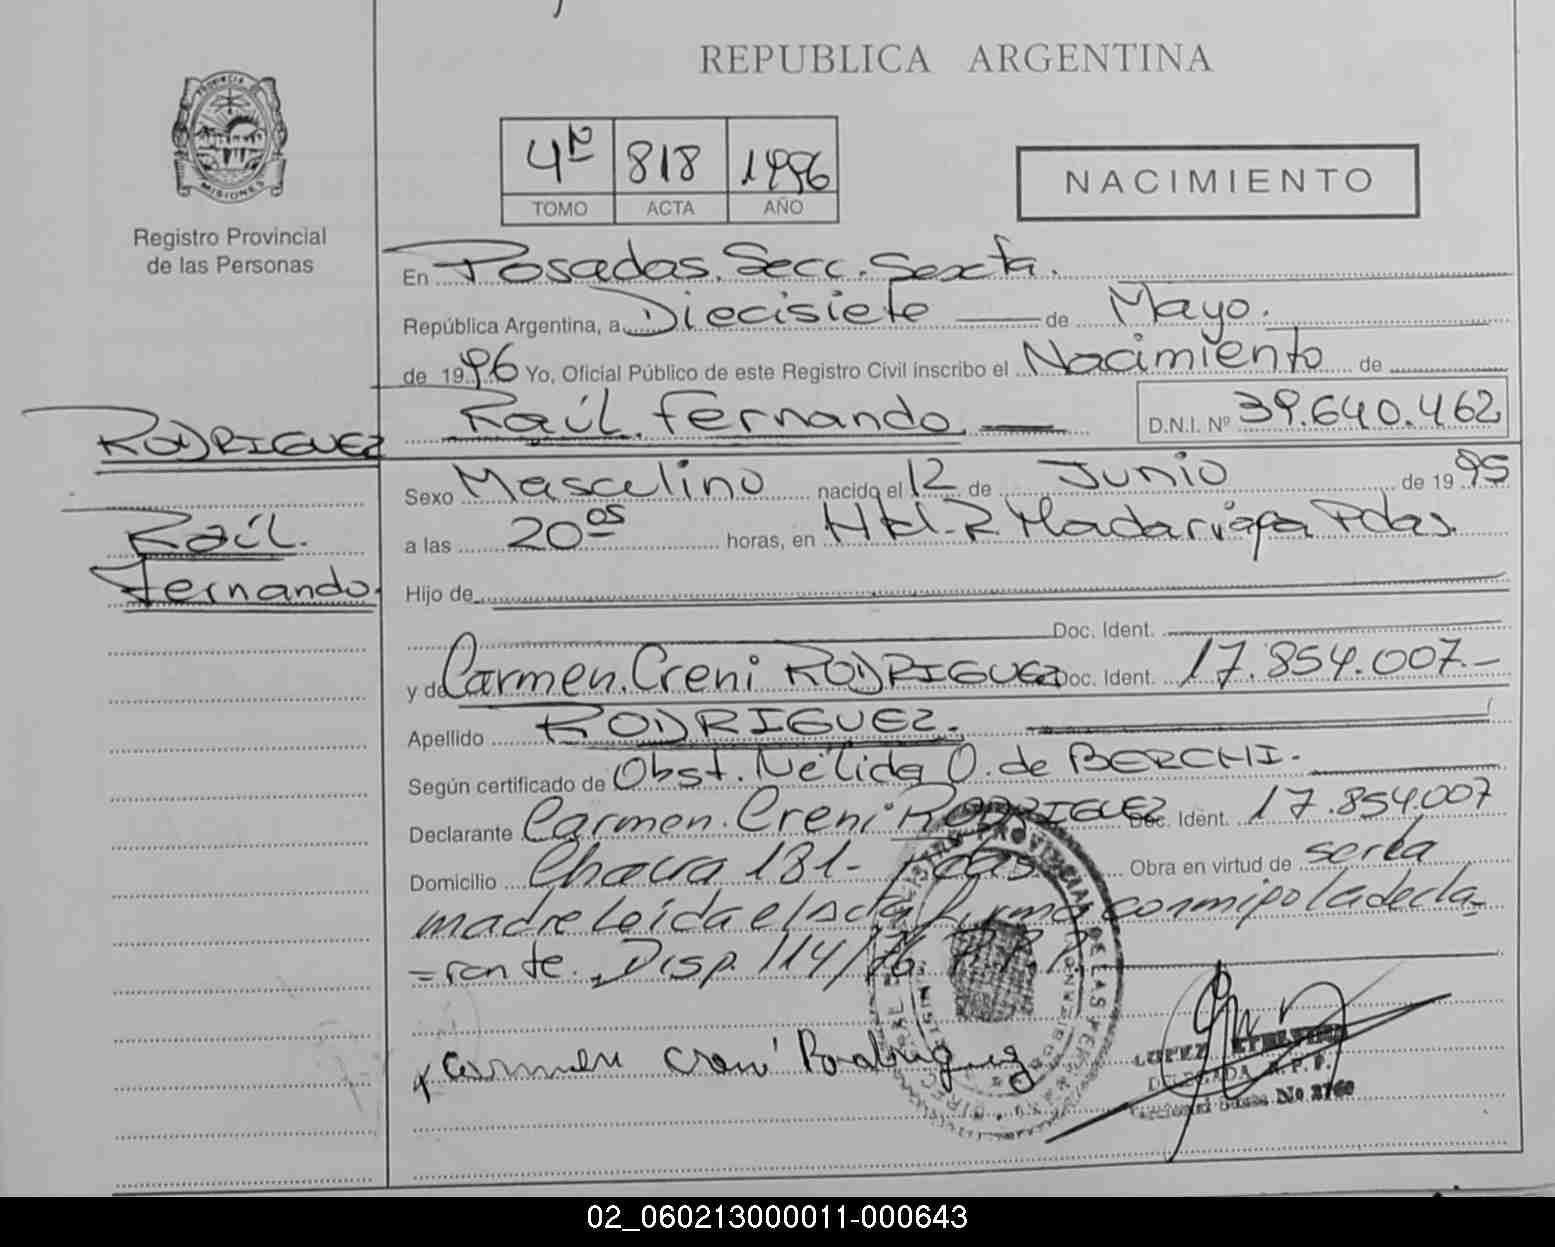 REPUBLICA ARGENTINA
PROVINCIA DE
MISIONES
Registro Provincial
de las Personas
4º 818 1996
TOMO ACTA AÑO
NACIMIENTO
En Posadas. Secc. Sexta.
República Argentina, a Diecisiete de Mayo.
de 1996 Yo, Oficial Público de este Registro Civil inscribo el Nacimiento de
RODRIGUEZ
Raúl Fernando D.N.I. Nº 39.640.462
Sexo Masculino nacido el 12 de Junio de 1995
Raúl.
Fernando.
a las 20 05 horas, en Htal. R. Madariaga Pdas.
Hijo de
Doc. Ident.
y de Carmen. Creni RODRIGUEZ Doc. Ident. 17.854.007.-
Apellido RODRIGUEZ.
Según certificado de Obst. Nélida O. de BERCHI.
Declarante Carmen. Creni RODRIGUEZ Doc. Ident. 17.854.007
Domicilio Chacra 181- Pdas Obra en virtud de ser la
madre Leída el Acta firma conmigo la decla=
=rante. Disp. 114/76 R.P.P.
x Carmen Creni Rodriguez
LOPEZ
DELEGADA R.P.P.
No 2760
02_060213000011-000643